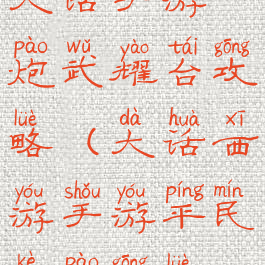 pào wǔ yào tái gōng
炮武耀台攻
lüè dà huà xī
略（大话西
yóu shǒu yóu píng mín
游手游平民
kè pào gōng lüè